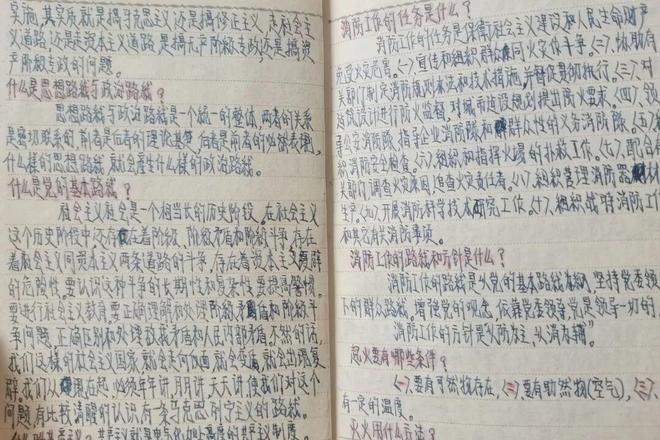 实施,其实质就是搞马克思主义,还是搞修正主义,走社会主
义道路,还是走资本主义道路,是搞无产阶级专政,还是搞资
产阶级专政的问题。
什么是思想路线与政治路线?
思想路线与政治路线是一个统一的整体,两者的关系
是密切联系的,前者是后者的理论基楚,后者是前者的必然表现,
什么样的思想路线,就会产生什么样的政治路线。
什么是党的基本路线?
社会主义社会是一个相当长的历史阶段。在社会主义
这个历史阶段中,还存在着阶级、阶级矛盾和阶级斗争,存在
着社会主义同资本主义两条道路的斗争,存在着资本主义复辟
的危险性。要认识这种斗争的长期性和复杂性。要提高警惕。
要进行社会主义教育。要正确理解和处理阶级矛盾和阶级斗
争问题,正确区别和处理敌我矛盾和人民内部矛盾。不然的话,
我们这样的社会主义国家,就会走向反面,就会变质,就会出现复
辟。我们从现在起,必须年年讲,月月讲,天天讲,使我们对这个
问题,有比较清醒的认识,有一条马克思列宁主义的路线。
消防工作的任务是什么?
消防工作的任务是保卫社会主义建设和人民生命财产
免受火灾危害。㈠宣传和组织群众同火灾作斗争。㈡协助有
关部门制定消防法和技术措施,并督促贯彻执行。㈢对
设计进行防火监督,对城市建设规划提出防火要求。㈣领
导公安消防队,指导企业消防队和群众性的义务消防队。㈤组
织消防安全检查。㈥组织和指挥火场的扑救工作。㈦配合有
关部门调查火灾原因,追查火灾责任者。㈧组织管理消防器材
生产。㈨开展消防科学技术研究工作。㈩组织战时消防工作
和其它有关消防事项。
消防工作的路线和方针是什么?
消防工作的路线是以党的基本路线为纲,坚持党委领
下的群众路线。增强党的观念,依靠党委领导,党是领导一切的。
消防工作的方针是"以防为主,以消为辅"。
起火要有哪些条件?
㈠要有可然物存在,㈡要有助然物(空气),㈢、
有一定的温度。
灭火用什么方法?